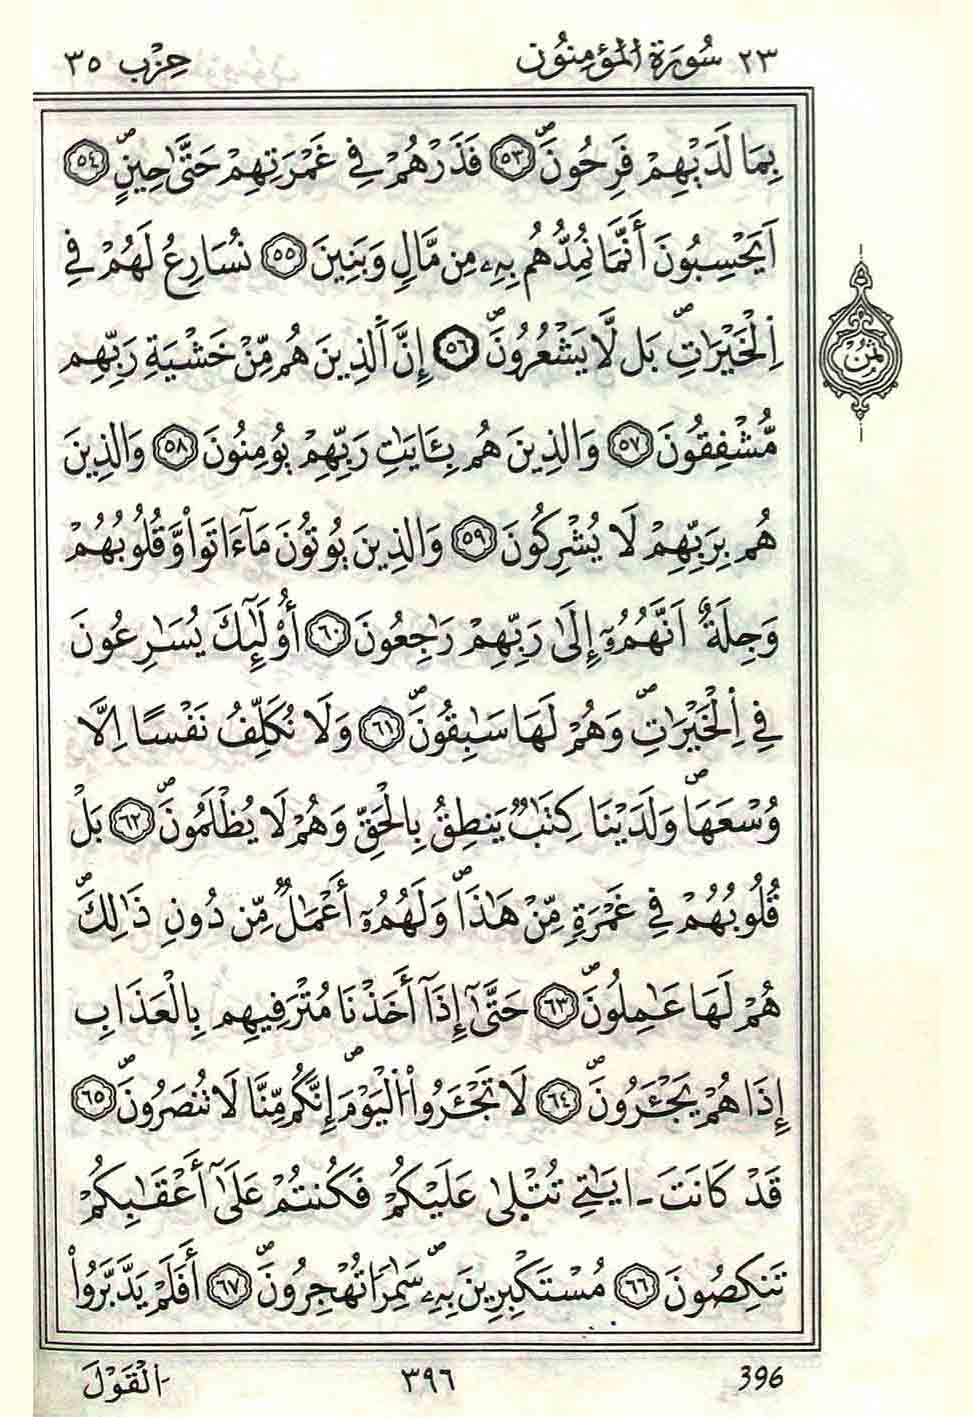 ٢٣ سُورَةُ الْمُؤْمِنُونَ حِزْب ٣٥
بِمَا لَدَيْهِمْ فَرِحُونَۖ ٥٣ فَذَرْهُمْ فِي غَمْرَتِهِمْ حَتَّىٰ حِينٍۖ ٥٤
اَيَحْسِبُونَ أَنَّمَا نُمِدُّهُم بِهِۦ مِن مَّالٍ وَبَنِينَ ٥٥ نُسَارِعُ لَهُمْ فِي
اِ۬لْخَيْرَٰتِۖ بَل لَّا يَشْعُرُونَۖ ٥٦ إِنَّ اَ۬لذِينَ هُم مِّنْ خَشْيَةِ رَبِّهِم
مُّشْفِقُونَ ٥٧ وَالذِينَ هُم بِـَٔايَٰتِ رَبِّهِمْ يُومِنُونَ ٥٨ وَالذِينَ
هُم بِرَبِّهِمْ لَا يُشْرِكُونَ ٥٩ وَالذِينَ يُوتُونَ مَآ ءَاتَواْ وَّقُلُوبُهُمْ
وَجِلَةٌ اَنَّهُمُۥٓ إِلَىٰ رَبِّهِمْ رَٰجِعُونَ ٦٠ أُوْلَٰٓئِكَ يُسَٰرِعُونَ
فِي اِ۬لْخَيْرَٰتِۖ وَهُمْ لَهَا سَٰبِقُونَۖ ٦١ وَلَا نُكَلِّفُ نَفْسًا اِلَّا
وُسْعَهَاۖ وَلَدَيْنَا كِتَٰبٌ يَنطِقُ بِالْحَقِّ وَهُمْ لَا يُظْلَمُونَۖ ٦٢ بَلْ
قُلُوبُهُمْ فِي غَمْرَةٍ مِّنْ هَٰذَاۖ وَلَهُمُۥٓ أَعْمَٰلٌ مِّن دُونِ ذَٰلِكَۖ
هُمْ لَهَا عَٰمِلُونَۖ ٦٣ حَتَّىٰٓ إِذَآ أَخَذْنَا مُتْرَفِيهِم بِالْعَذَابِ
إِذَا هُمْ يَجْـَٔرُونَۖ ٦٤ لَا تَجْـَٔرُواْ اُ۬لْيَوْمَۖ إِنَّكُم مِّنَّا لَا تُنصَرُونَۖ ٦٥
قَدْ كَانَتَ ـ ايَٰتِي تُتْلَىٰ عَلَيْكُمْ فَكُنتُمْ عَلَىٰٓ أَعْقَٰبِكُمْ
تَنكِصُونَ ٦٦ مُسْتَكْبِرِينَ بِهِۦۖ سَٰمِرًا تُهْجِرُونَۖ ٦٧ أَفَلَمْ يَدَّبَّرُواْ
ثمن
اَ۬لْقَوْلَ ٣٩٦ 396